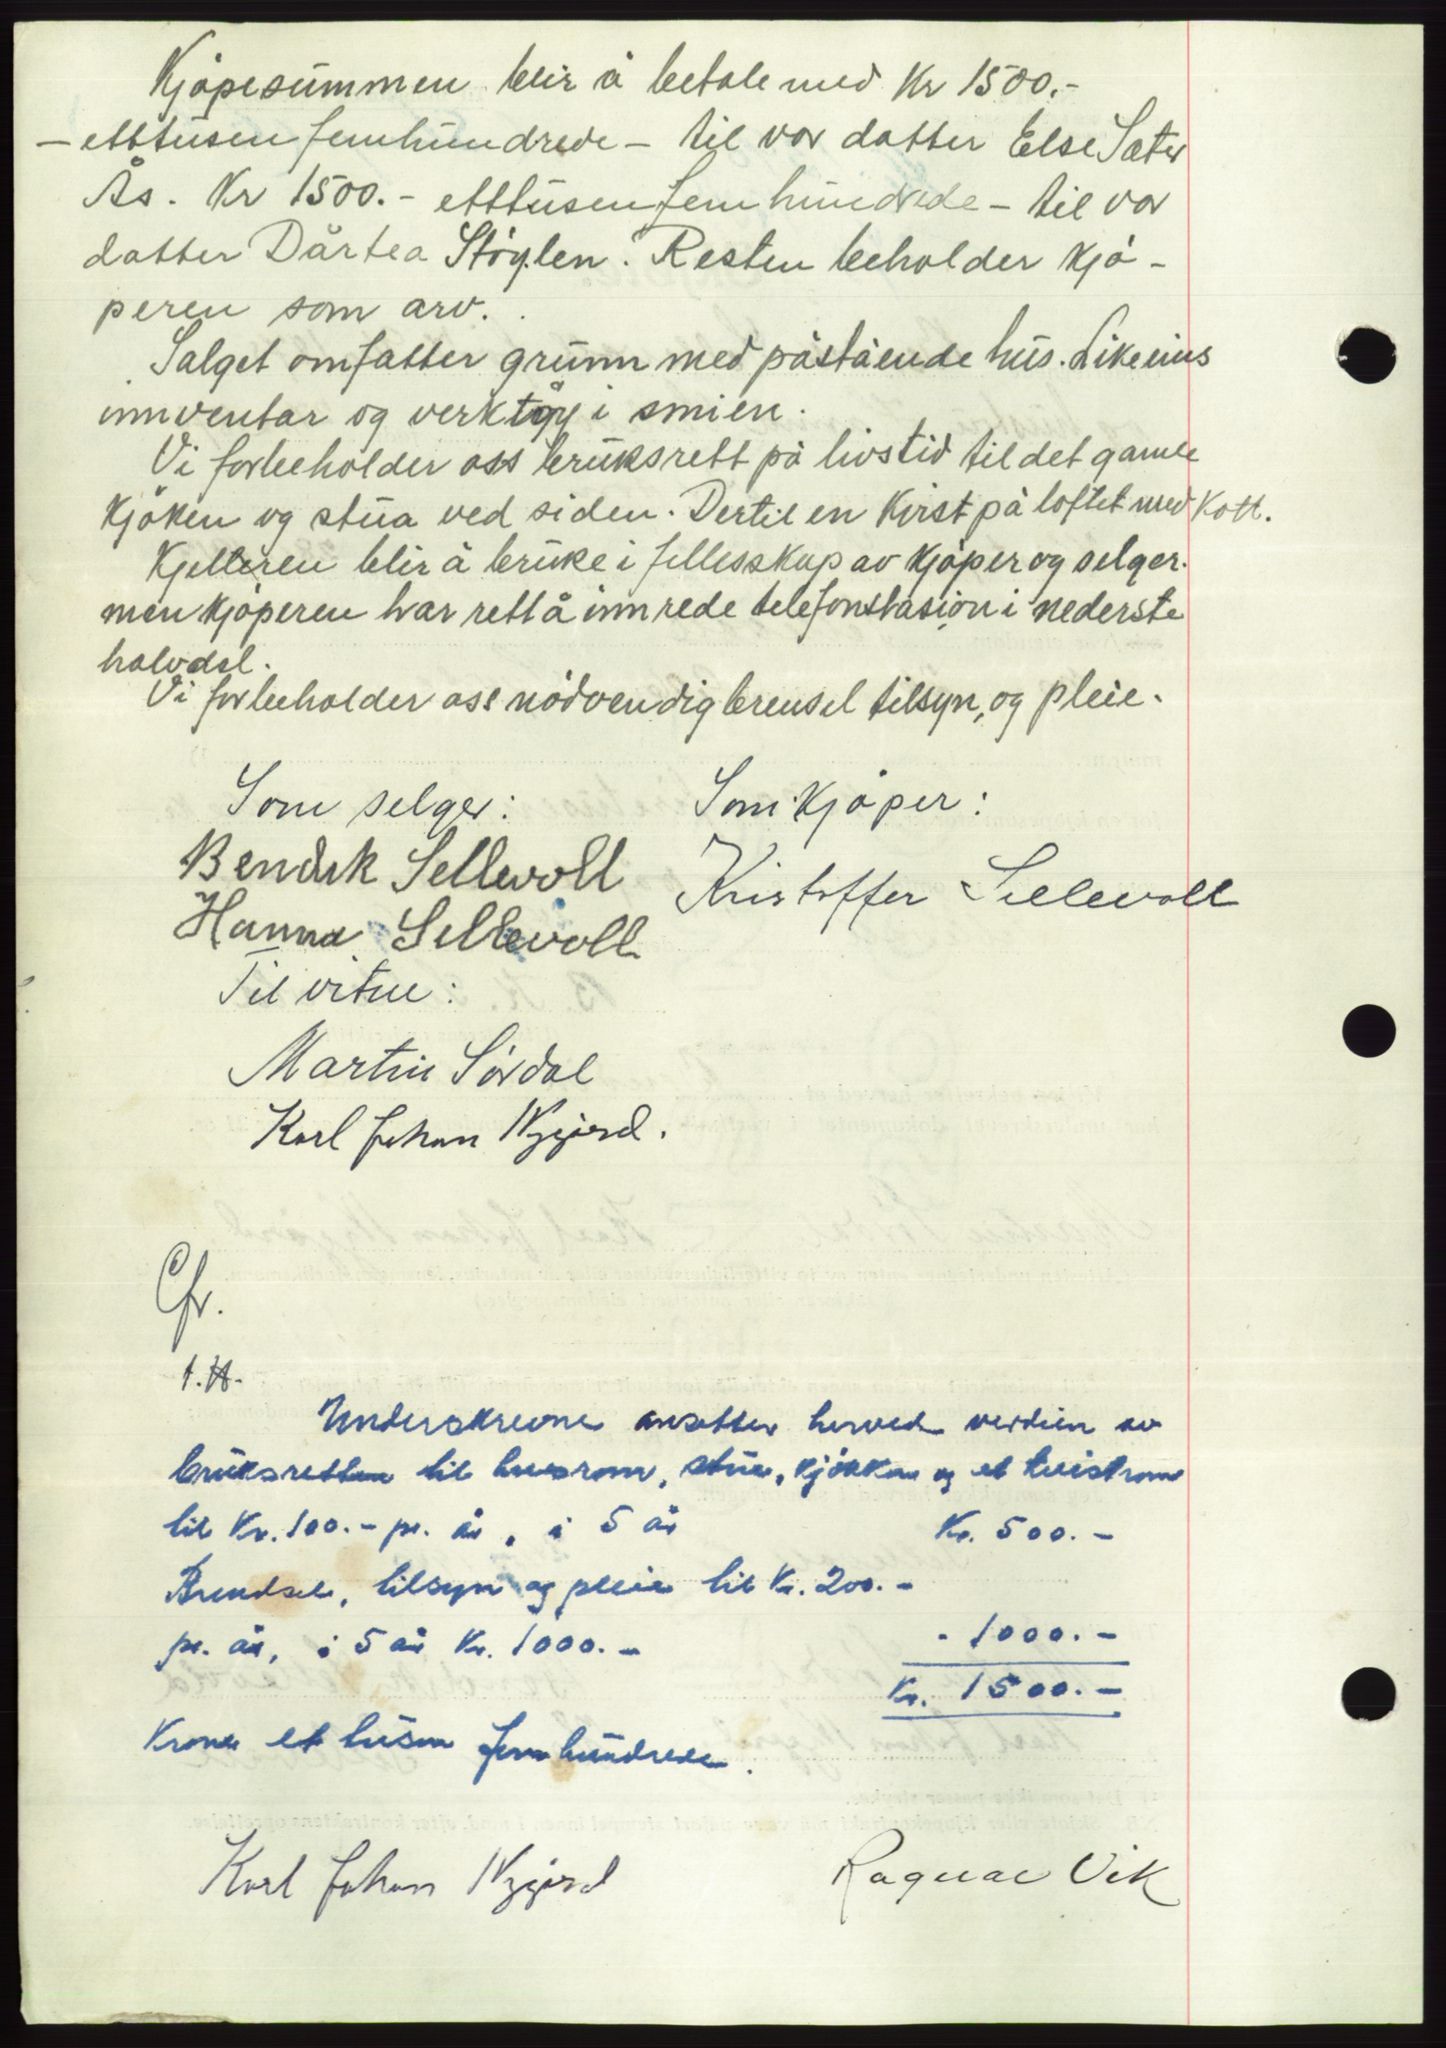 Kjøpesummen blir å betale med Kr 1500.-
- ettusen femhundrede - til vor datter Else Sæter
Ås. Kr 1500.- ettusen fem hundrede - til vor
datter Dårtea Støylen. Resten beholder kjø-
peren som arv.
Salget omfatter grunn med påstående hus. Likeeins
innventar og verktøy i smien.
Vi forbeholder oss bruksrett på livstid til det gamle
kjøken og stua ved siden. Dertil en Kvist på loftet med Kott.
Kjelleren blir å bruke i fellesskap av kjøper og selger.
men kjøperen har rett å innrede telefonstasion i nederste
halvdel.
Vi forbeholder oss nødvendig brensel tilsyn, og pleie.
Som selger: Som kjøper:
Bendik Sellevoll Kristoffer Sellevoll
Hanna Sellevoll
Til vitne:
Martin Sørdal
Karl Johan Nygjerd.
Cfr.
Underskrevne ansetter herved verdien av
bruksretten til husrom, stue, kjøkken og et kvistrom
til Kr. 100.- pr. år, i 5 år Kr. 500.-
Brendsel, tilsyn og pleie til Kr. 200.-
pr. år, i 5 år Kr. 1000.- - 1000.-
Kr. 1500.-
Kroner et tusen fem hundrede.
Karl Johan Nygjerd Ragnar Vik